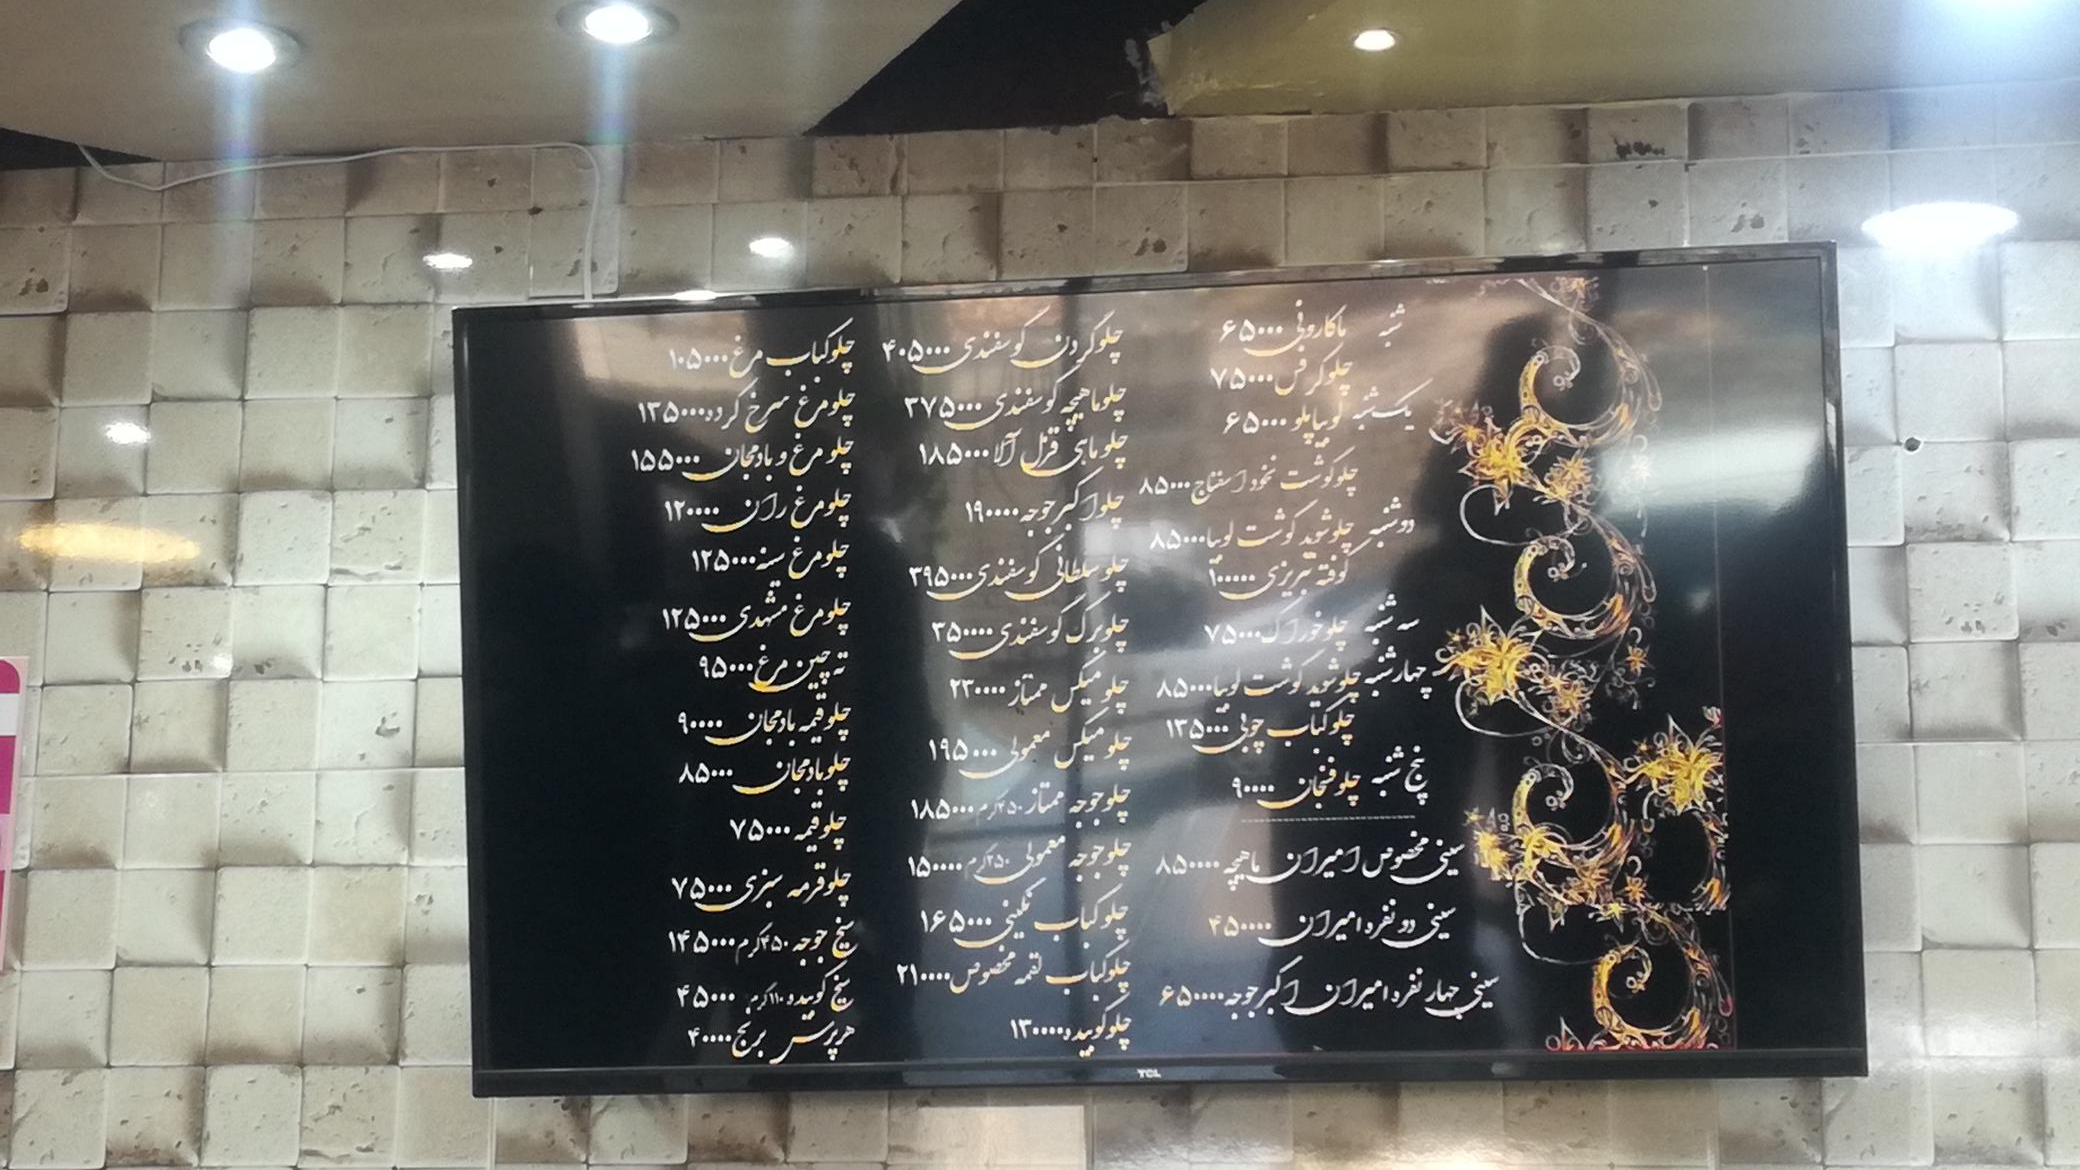 شنبه ماکارونی ۶۵۰۰۰
چلوکرفس ۷۵۰۰۰
یک‌شنبه لوبیاپلو ۶۵۰۰۰
چلوگوشت نخود اسفناج ۸۵۰۰۰
دوشنبه چلوشوید گوشت لوبیا ۸۵۰۰۰
کوفته تبریزی ۱۰۰۰۰۰
سه شنبه چلوخوراک ۷۵۰۰۰
چهارشنبه چلوشوید گوشت لوبیا ۸۵۰۰۰
چلوکباب چوبی ۱۳۵۰۰۰
پنج شنبه چلوفنجان ۹۰۰۰۰
سینی مخصوص امیران ماهیچه ۸۵۰۰۰۰
سینی دو نفره امیران ۴۵۰۰۰۰
سینی چهار نفره امیران اکبرجوجه ۶۵۰۰۰۰
چلوگردن گوسفندی ۴۰۵۰۰۰
چلوماهیچه گوسفندی ۳۷۵۰۰۰
چلوماهی قزل آلا ۱۸۵۰۰۰
چلواکبرجوجه ۱۹۰۰۰۰
چلوسلطانی گوسفندی ۳۹۵۰۰۰
چلوبرگ گوسفندی ۳۵۰۰۰۰
چلومیکس ممتاز ۲۳۰۰۰۰
چلومیکس معمولی ۱۹۵۰۰۰
چلوجوجه ممتاز ۴۵۰گرم ۱۸۵۰۰۰
چلوجوجه معمولی ۲۵۰گرم ۱۵۰۰۰۰
چلوکباب نگینی ۱۶۵۰۰۰
چلوکباب لقمه مخصوص ۲۱۰۰۰۰
چلوکوبیده ۱۳۰۰۰۰
چلوکباب مرغ ۱۰۵۰۰۰
چلومرغ سرخ کرده ۱۳۵۰۰۰
چلومرغ و بادمجان ۱۵۵۰۰۰
چلومرغ ران ۱۲۰۰۰۰
چلومرغ سینه ۱۲۵۰۰۰
چلومرغ مشهدی ۱۲۵۰۰۰
ته چین مرغ ۹۵۰۰۰
چلوقیمه بادمجان ۹۰۰۰۰
چلوبادمجان ۸۵۰۰۰
چلوقیمه ۷۵۰۰۰
چلوقرمه سبزی ۷۵۰۰۰
سیخ جوجه ۴۵۰گرم ۱۴۵۰۰۰
سیخ کوبیده ۱۱۰گرم ۴۵۰۰۰
هرپرس برنج ۴۰۰۰۰
TCL